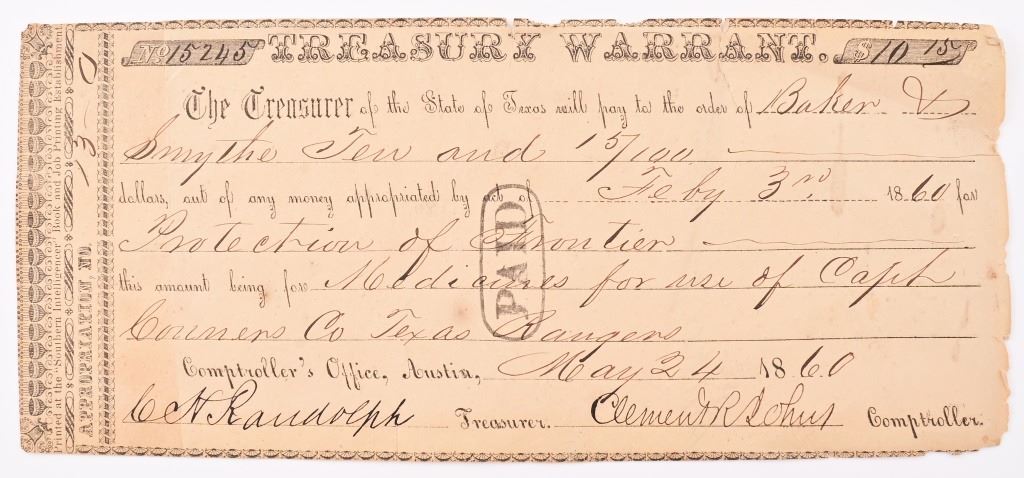 No 15245 TREASURY WARRANT. $10 15
The Treasurer of the State of Texas will pay to the order of Baker &
Smythe Ten and 15/100
dollars, out of any money appropriated by act of Feby 3rd 1860 for
Protection of Frontier
this amount being for Medicines for use of Capt
Conners Co Texas Rangers
PAID
Comptroller's Office, Austin, May 24 1860
C H Randolph Treasurer. Clement R Johns Comptroller.
Printed at the "Southern Intelligencer" Book and Job Printing Establishment
APPROPRIATION NO